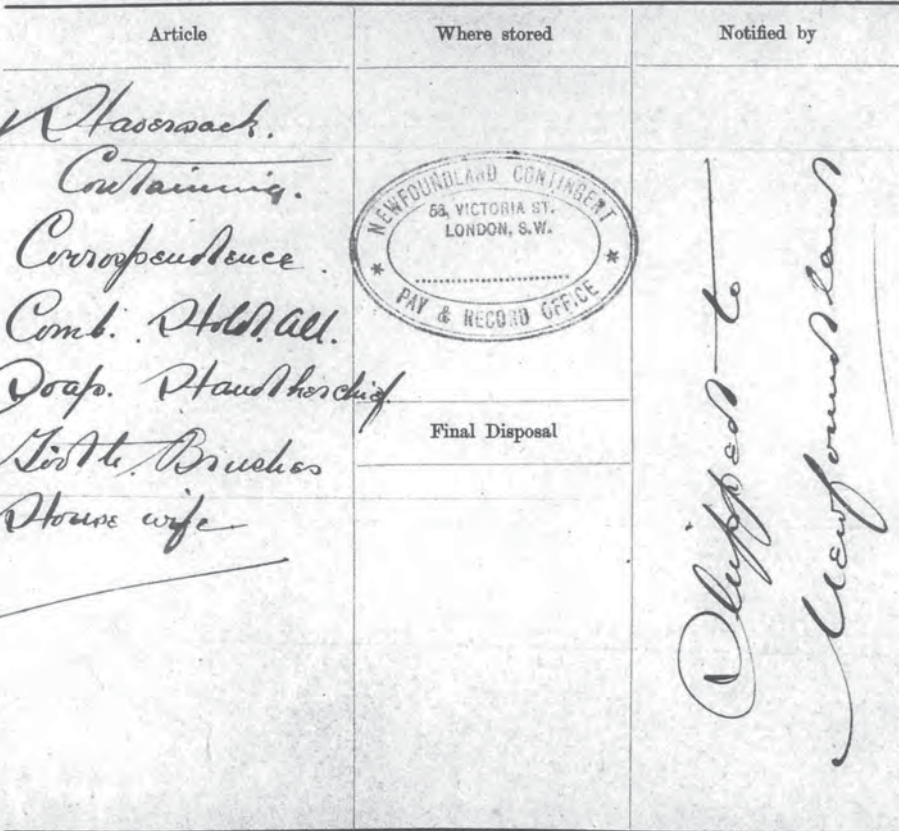 Article
Where stored
Notified by
Haversack.
Containing.
Correspondence.
Comb. Hold.All.
Soap. Handkerchief.
Tooth. Brushes
House wife
NEWFOUNDLAND CONTINGENT
58, VICTORIA ST.
LONDON, S.W.
* PAY & RECORD OFFICE *
Final Disposal
Shipped to
Newfoundland